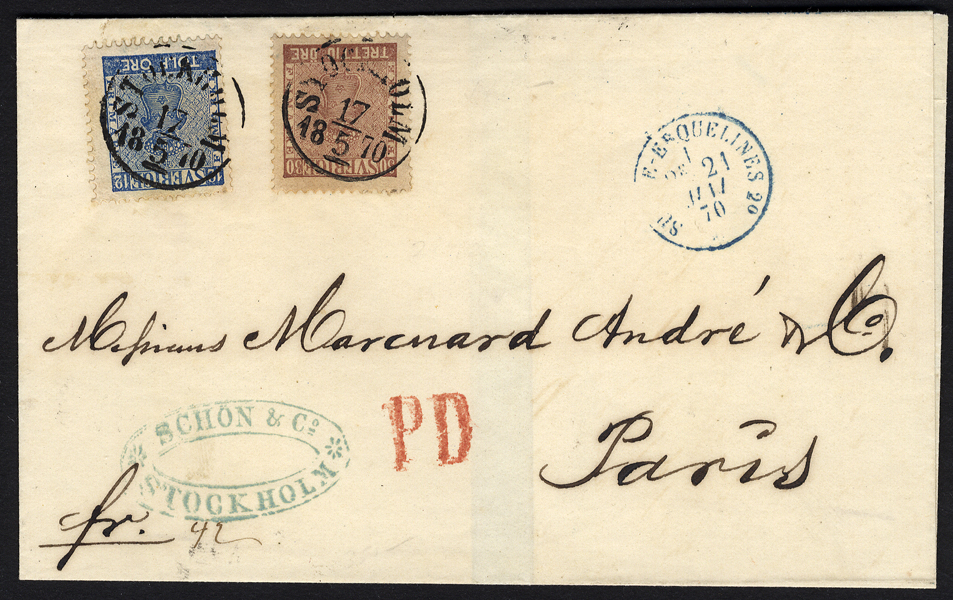 TOLF ÖRE
SVERIGE
12
STOCKHOLM
17
5
18 70
TRETTIO ÖRE
SVERIGE
30
STOCKHOLM
17
5
18 70
E-ERQUELINES 20
21
MAI
70
Messieurs Marcuard André & Co.
Paris
PD
SCHÖN & Co
STOCKHOLM
fr. 42